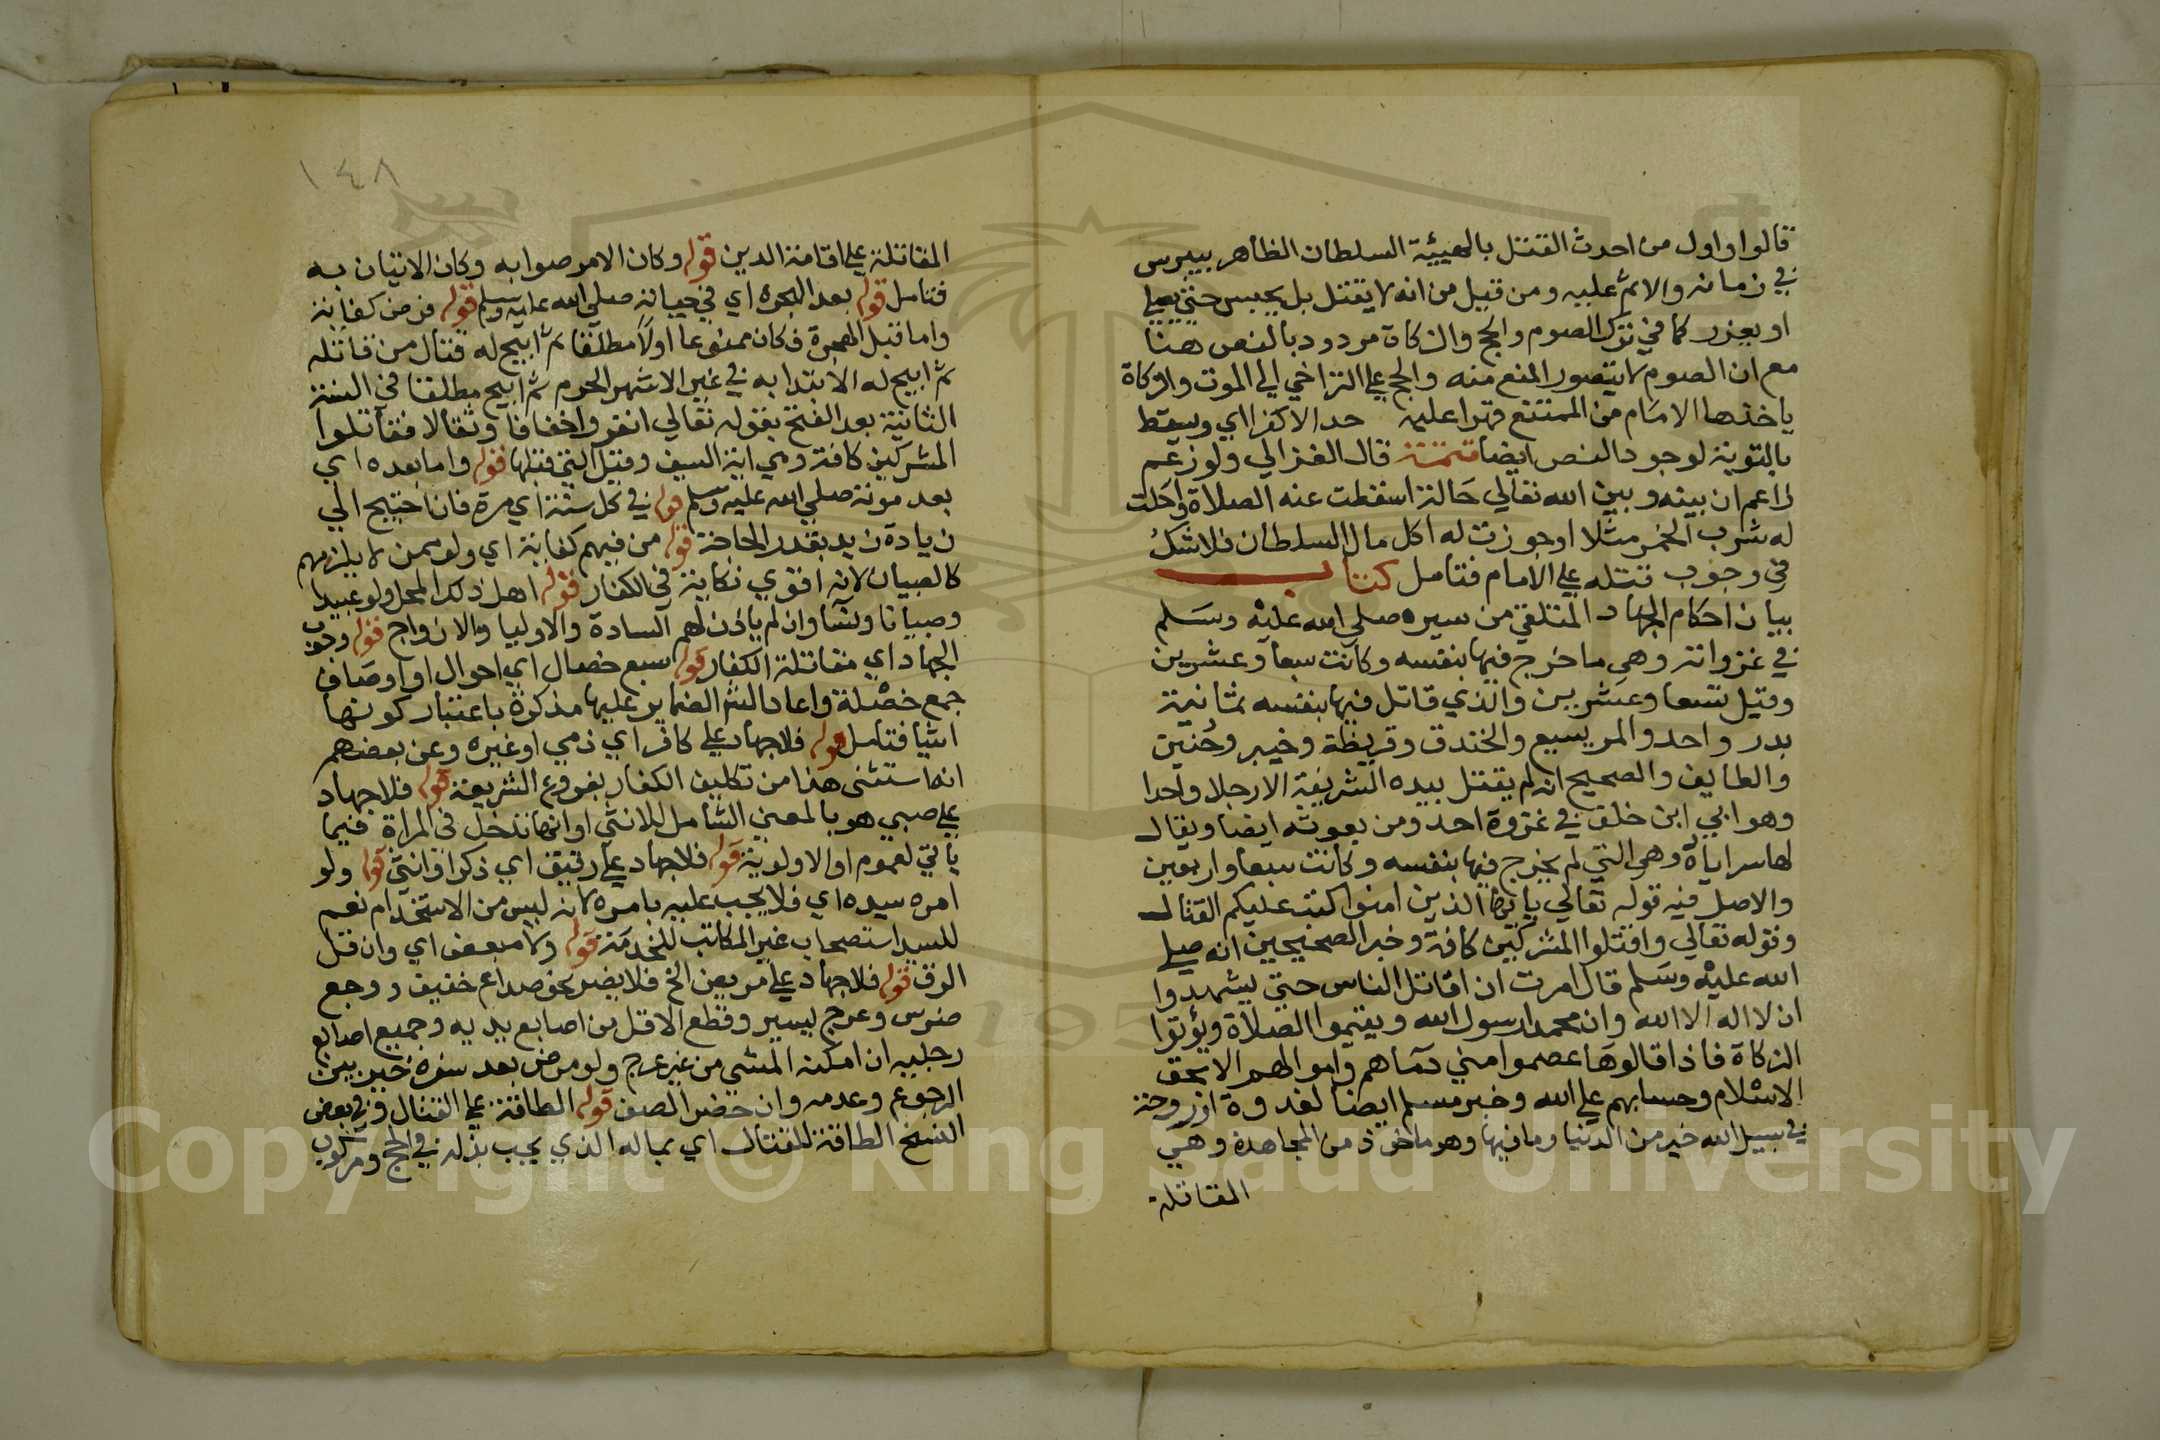 قالوا واول من احدث القتل بالهيئة السلطان الظاهر بيبرس
في زمانه والاثم عليه ومن قبيل من انه لا يقتل بل يحبس حتي يصلي
او يعزر كما في ترك الصوم والحج والزكاة مردود بالنص هنا
مع ان الصوم لا يتصور المنع منه والحج علي التراخي الي الموت والزكاة
ياخذها الامام من الممتنع قهرا عليه حد الاكفر اي وسقط
بالتوبة لوجود النص ايضا تتمة قال الغزالي ولو زعم
زاعم ان بينه وبين الله تعالي حالة اسقطت عنه الصلاة واحلت
له شرب الخمر مثلا او جوزت له اكل مال السلطان فلا شك
في وجوب قتله علي الامام فتامل كتاب
بيان احكام الجهاد المتلقي من سيره صلي الله عليه وسلم
في غزواته وهي ما خرج فيها بنفسه وكانت سبعا وعشرين
وقيل تسعا وعشرين والذي قاتل فيها بنفسه ثمانية
بدر واحد والمريسيع والخندق وقريظة وخيبر وحنين
والطايف والصحيح انه لم يقتل بيده الشريفة الا رجلا واحدا
وهو ابي ابن خلف في غزوة احد ومن بعوثه ايضا ويقال
لها سراياه وهي التي لم يخرج فيها بنفسه وكانت سبعا واربعين
والاصل فيه قوله تعالي يا ايها الذين امنوا كتب عليكم القتال
وقوله تعالي واقتلوا المشركين كافة وخبر الصحيحين انه صلي
الله عليه وسلم قال امرت ان اقاتل الناس حتي يشهدوا
ان لا اله الا الله وان محمدا رسول الله ويقيموا الصلاة ويؤتوا
الزكاة فاذا قالوها عصموا مني دماهم واموالهم الا بحق
الاسلام وحسابهم علي الله وخبر مسلم ايضا لغدوة او روحة
في سبيل الله خير من الدنيا وما فيها وهو ماخوذ من المجاهدة وهي
المقاتلة
١٤٨
المقاتلة علي اقامة الدين قوله وكان الامر صوابه وكان الاتيان به
فتامل قوله بعد الهجرة اي في حياته صلي الله عليه وسلم قوله فرض كفاية
واما قبل الهجرة فكان ممنوعا اولا مطلقا ثم ابيح له قتال من قاتله
ثم ابيح له الابتدا به في غير الاشهر الحرم ثم ابيح مطلقا في السنة
الثانية بعد الفتح بقوله تعالي انفروا خفافا وثقالا فقاتلوا
المشركين كافة وهي اية السيف وقيل التي قبلها قوله واما بعده اي
بعد موته صلي الله عليه وسلم قوله في كل سنة اي مرة فان احتيج الي
زيادة زيد بقدر الحاجة قوله من فيهم كفاية اي ولو ممن لا يلزمهم
كالصبيان لانه اقوي نكاية في الكفار قوله اهل ذلك المحل ولو عبيدا
وصبيانا ونسا وان لم ياذن لهم السادة والاوليا والازواج قوله وجوب
الجهاد اي مقاتلة الكفار قوله سبع خصال اي احوال او اوصاف
جمع خصلة واعاد الش الضماير عليها مذكرة باعتبار كونها
اشيا فتامل قوله فلا جهاد علي كافر اي ذمي او غيره وعن بعضهم
انه استثنى هذا من تكليف الكفار بفروع الشريعة قوله فلا جهاد
علي صبي هو بالمعني الشامل للانثي او انها تدخل في المراة فيما
ياتي لعموم او الاولوية قوله فلا جهاد علي رقيق اي ذكر او انثي قوله ولو
امره سيده اي فلا يجب عليه بامره لانه ليس من الاستخدام نعم
للسيد استصحاب غير المكاتب للخدمة قوله ولا مبعض اي وان قل
الرق قوله فلا جهاد علي مريض الخ فلا يضر نحو صداع خفيف ووجع
ضرس وعرج يسير وقطع الاقل من اصابع يديه وجميع اصابع
رجليه ان امكنه المشي من غير عرج ولو مرض بعد سفره خير بين
الرجوع وعدمه وان حضر الصف قوله الطاقة علي القتال وفي بعض
النسخ الطاقة للقتال اي بماله الذي يجب بذله في الحج ومركوب
Copyright © King Saud University